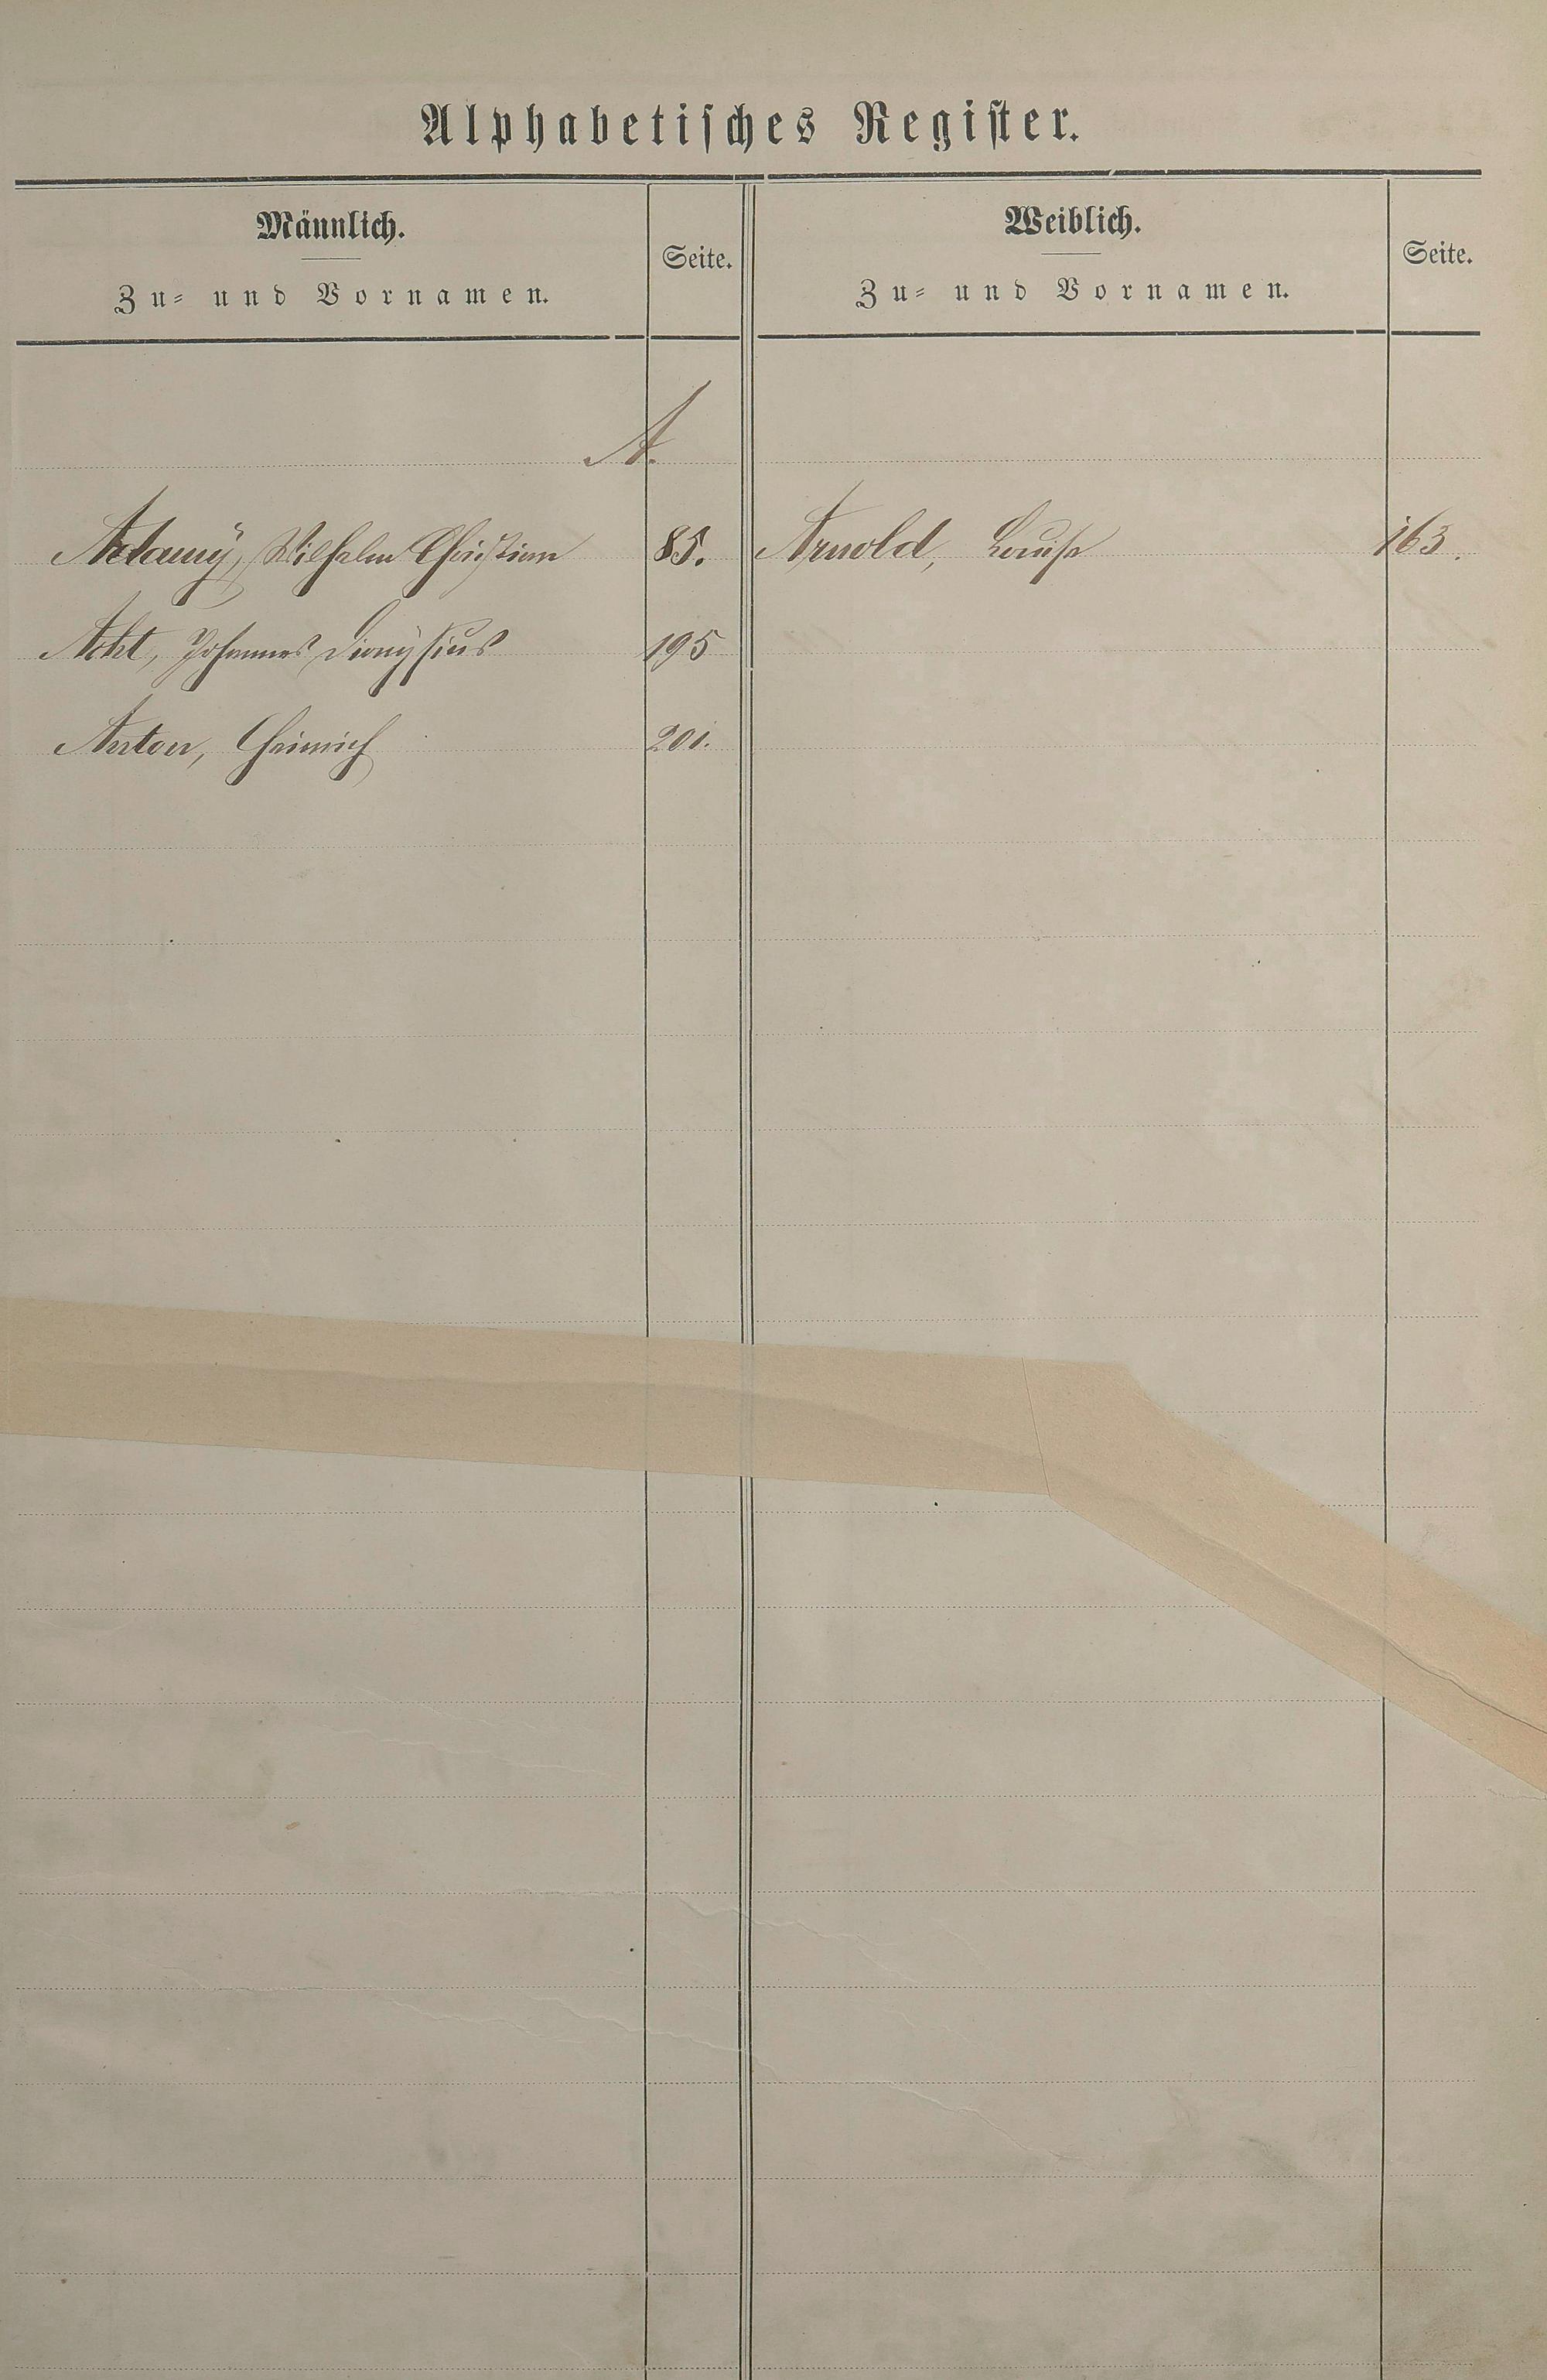 Alphabetisches Register.
Männlich.
Zu- und Vornamen.
Seite.
Weiblich.
Zu- und Vornamen.
Seite.
A.
Adamÿ, Wilhelm Christian 85.
Arnold, Louise 163.
Acht, Johannes Dionÿsius 195
Anton, Heinrich 201.